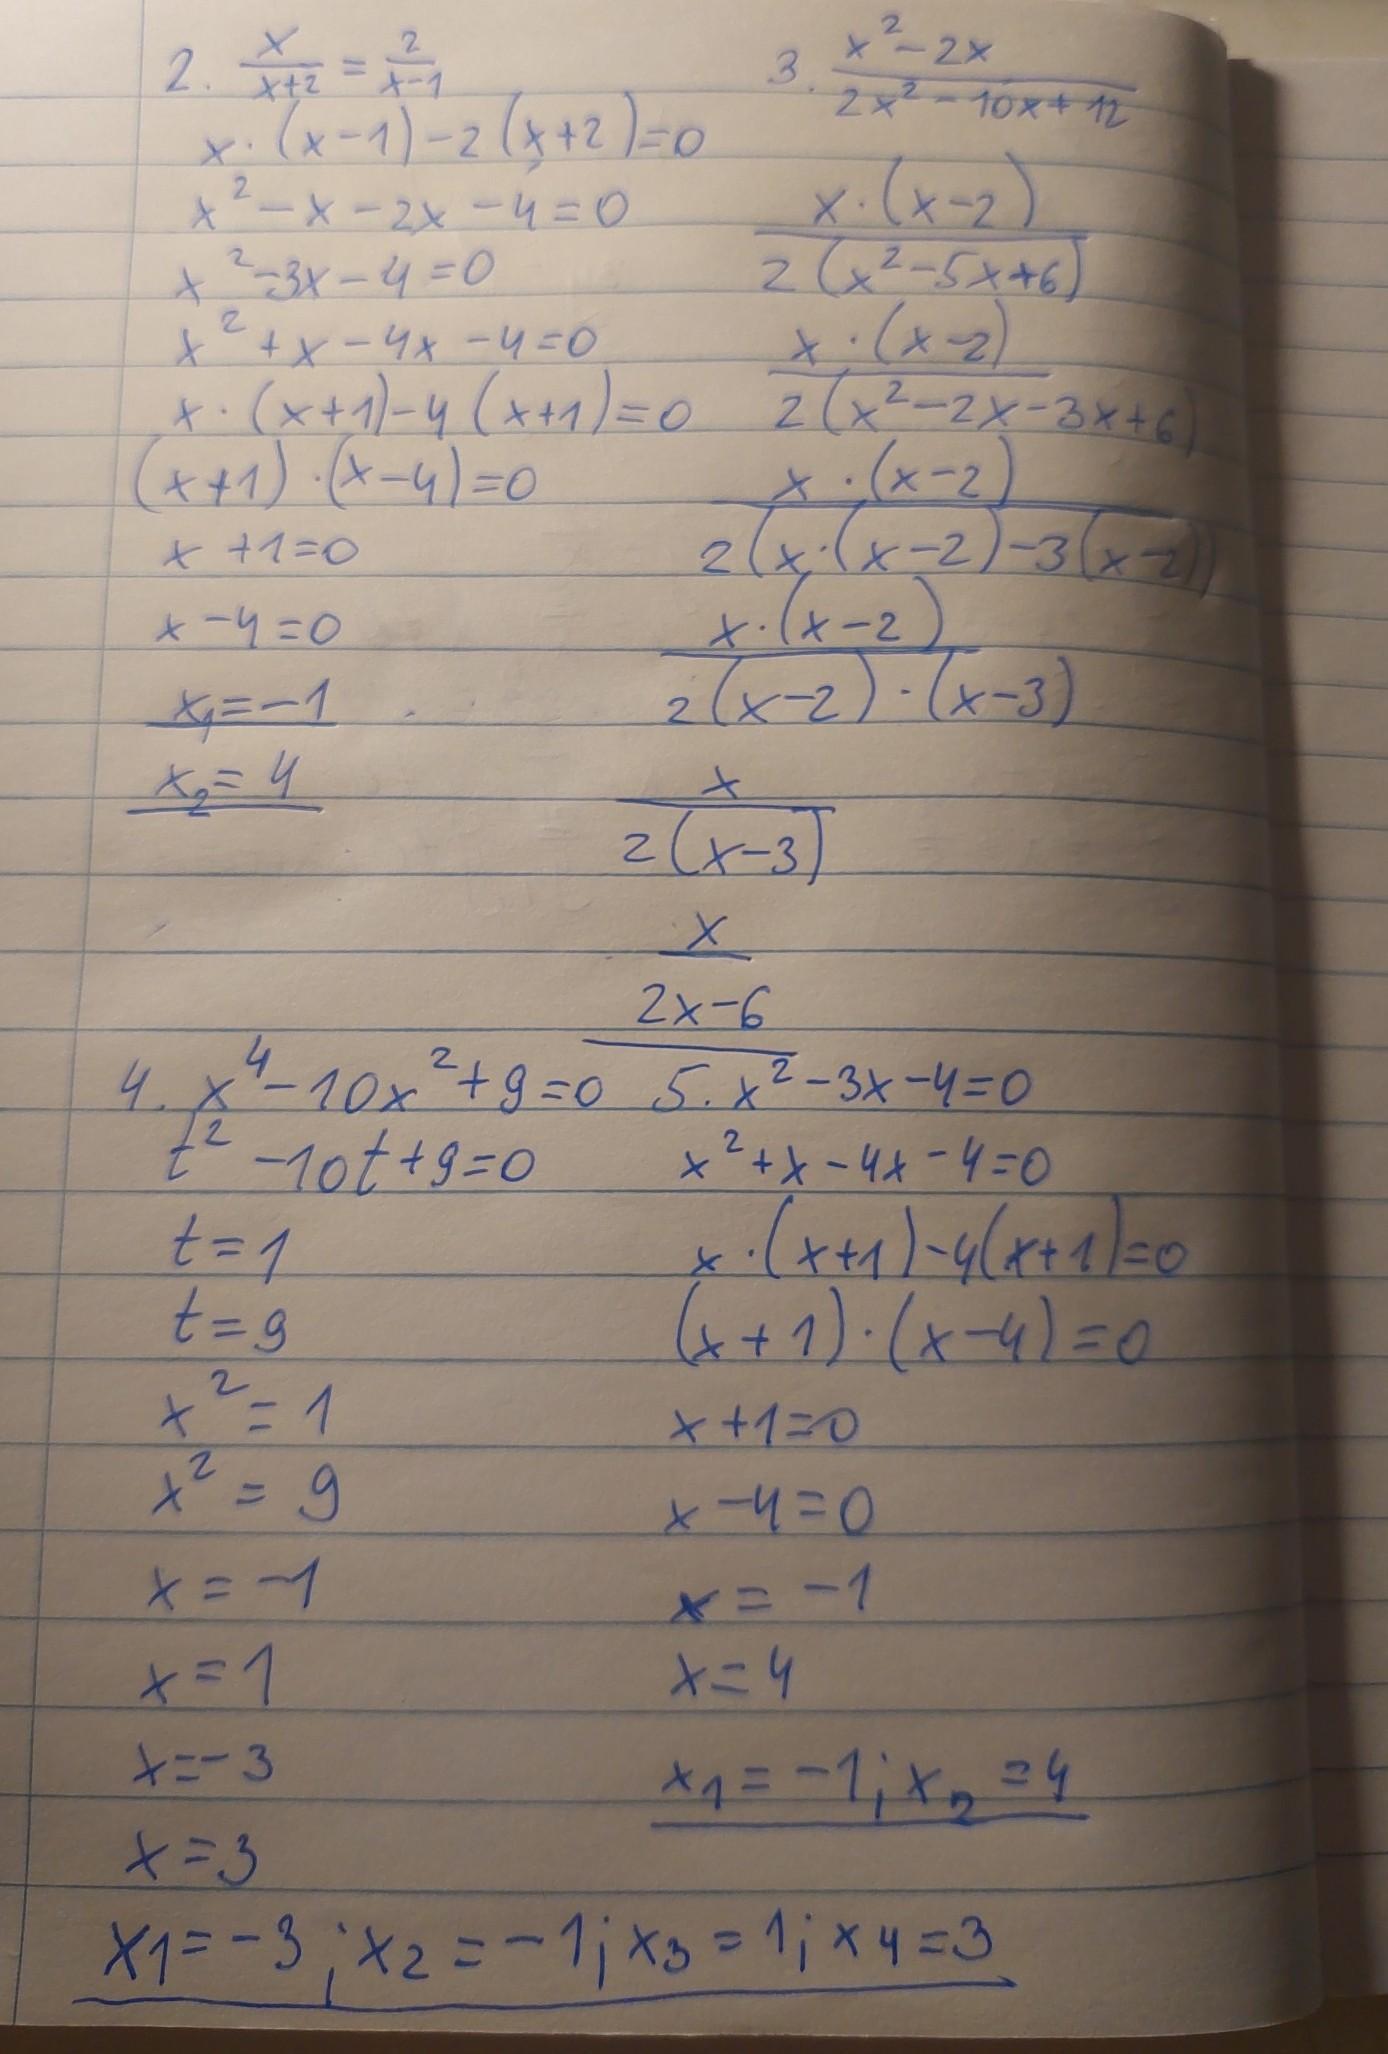 2. x/(x+2) = 2/(x-1)
x·(x-1)-2(x+2)=0
x²-x-2x-4=0
x²-3x-4=0
x²+x-4x-4=0
x·(x+1)-4(x+1)=0
(x+1)·(x-4)=0
x+1=0
x-4=0
x₁=-1
x₂=4
3. (x²-2x)/(2x²-10x+12)
x·(x-2)
2(x²-5x+6)
x·(x-2)
2(x²-2x-3x+6)
x·(x-2)
2(x·(x-2)-3(x-2))
x·(x-2)
2(x-2)·(x-3)
x
2(x-3)
x
2x-6
4. x⁴-10x²+9=0
t²-10t+9=0
t=1
t=9
x²=1
x²=9
x=-1
x=1
x=-3
x=3
x1=-3; x2=-1; x3=1; x4=3
5. x²-3x-4=0
x²+x-4x-4=0
x·(x+1)-4(x+1)=0
(x+1)·(x-4)=0
x+1=0
x-4=0
x=-1
x=4
x₁=-1; x₂=4